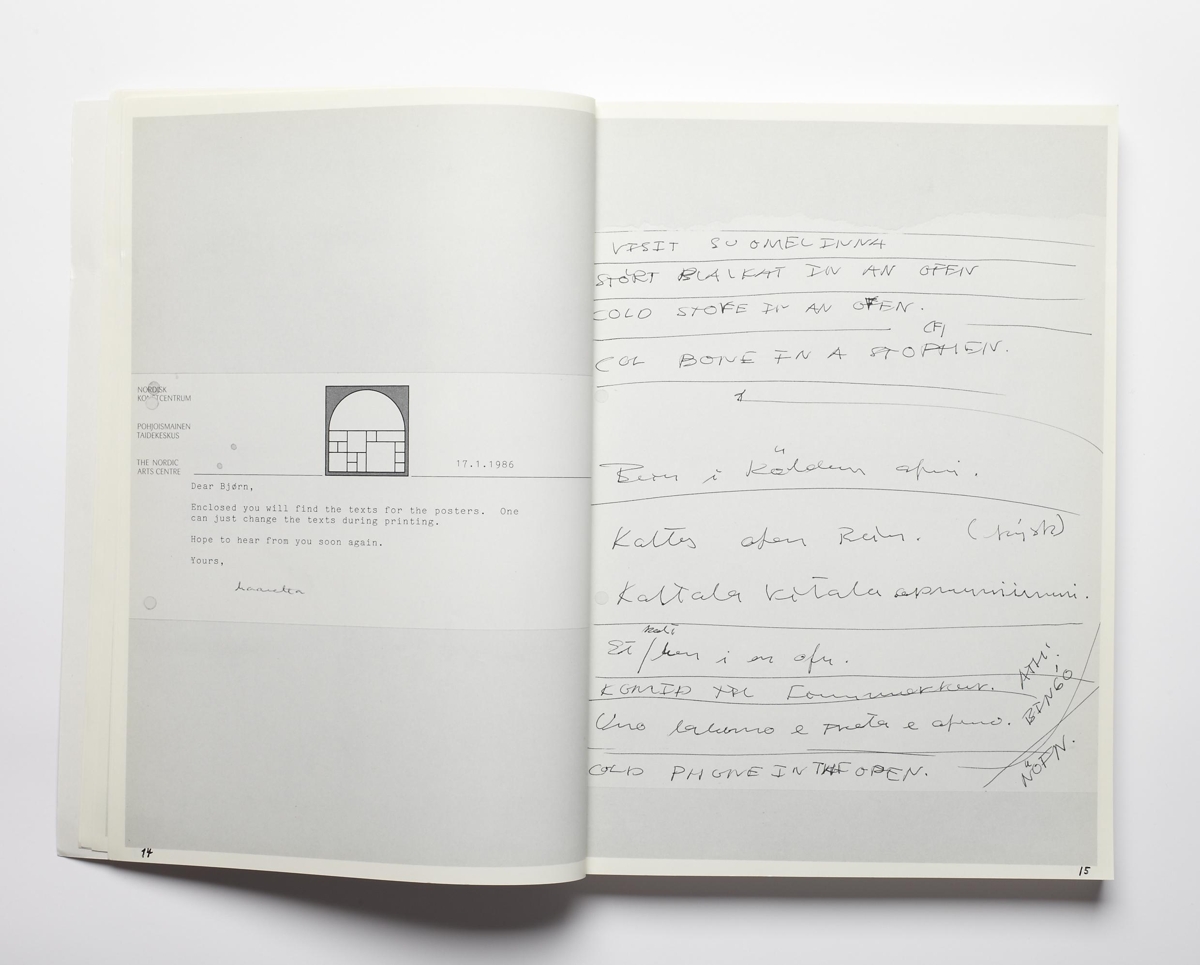 NORDISK
KONSTCENTRUM
POHJOISMAINEN
TAIDEKESKUS
THE NORDIC
ARTS CENTRE
17.1.1986
Dear Bjørn,
Enclosed you will find the texts for the posters. One
can just change the texts during printing.
Hope to hear from you soon again.
Yours,
14
VISIT SUOMELINNA
STÓRT BLALKAT IN AN OFEN
COLD STOFE IN AN OFEN.
(F)
COL BONE IN A STOPHEN.
i köldum ofni.
Kaltes ofen
Kaltala
i en
KOMID
Uno e e
COLD PHONE IN THE OPEN.
ATH!
BINGÓ
NÖFN.
15